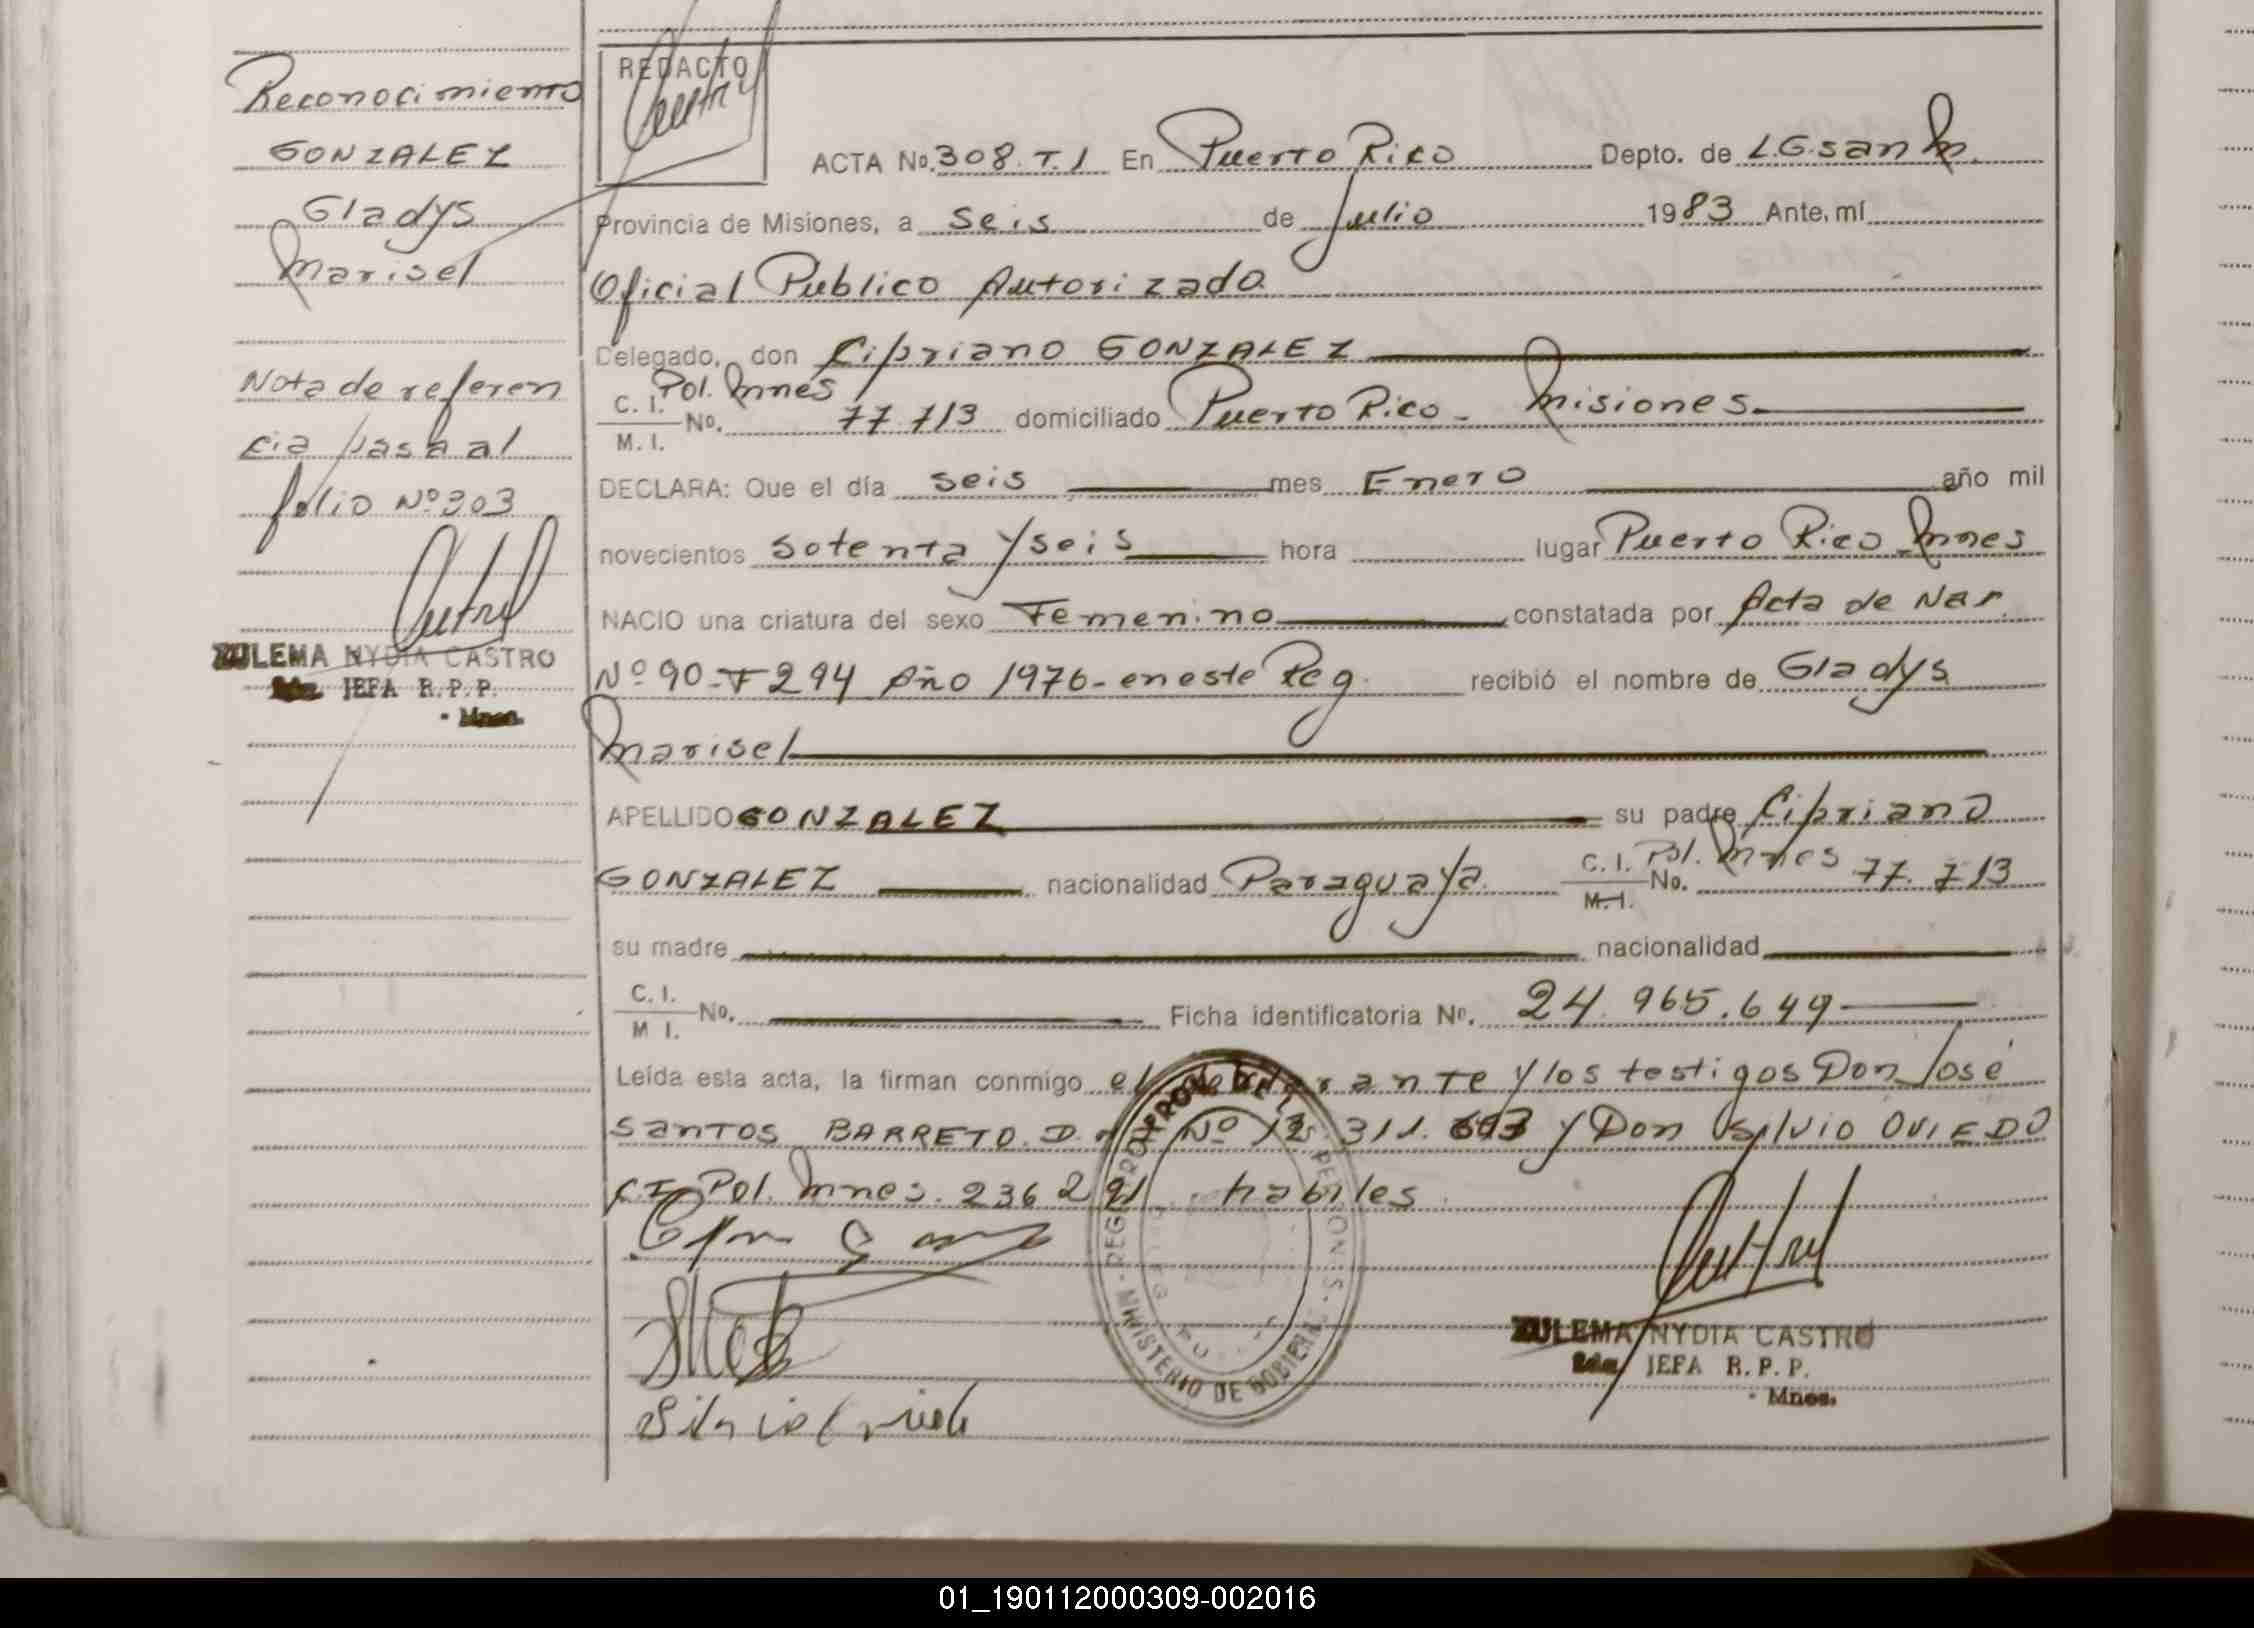 Reconocimiento
GONZALEZ
Gladys
Marisel
Nota de referen
cia pasa al
folio Nº 303
ZULEMA NYDIA CASTRO
JEFA R.P.P.
Mnes.
REDACTO
ACTA No. 308. T. 1 En Puerto Rico Depto. de L.G. San M.
Provincia de Misiones, a seis de Julio 1983 Ante, mí
Oficial Publico Autorizado
Delegado, don Cipriano GONZALEZ
C. I. Pol. Mnes
M. I. No. 77.713 domiciliado Puerto Rico - Misiones
DECLARA: Que el día seis mes Enero año mil
novecientos Setenta y seis hora lugar Puerto Rico Mnes
NACIO una criatura del sexo Femenino constatada por Acta de Nac.
Nº 90 - T 294 Año 1976 - en este Reg. recibió el nombre de Gladys
Marisel
APELLIDO GONZALEZ su padre Cipriano
GONZALEZ nacionalidad Paraguaya C. I. Pol. Mnes M. I. No. 77.713
su madre nacionalidad
C. I. M I. No. Ficha identificatoria No. 24.965.649
Leída esta acta, la firman conmigo el declarante y los testigos Don José
Santos BARRETO. D. Nº 311. y Don Silvio OVIEDO
C.I. Pol. Mnes. 236 291 habiles.
REGISTRO PROVINCIAL DE LAS PERSONAS - MINISTERIO DE GOBIERNO
ZULEMA NYDIA CASTRO
JEFA R.P.P.
Mnes.
01_190112000309-002016